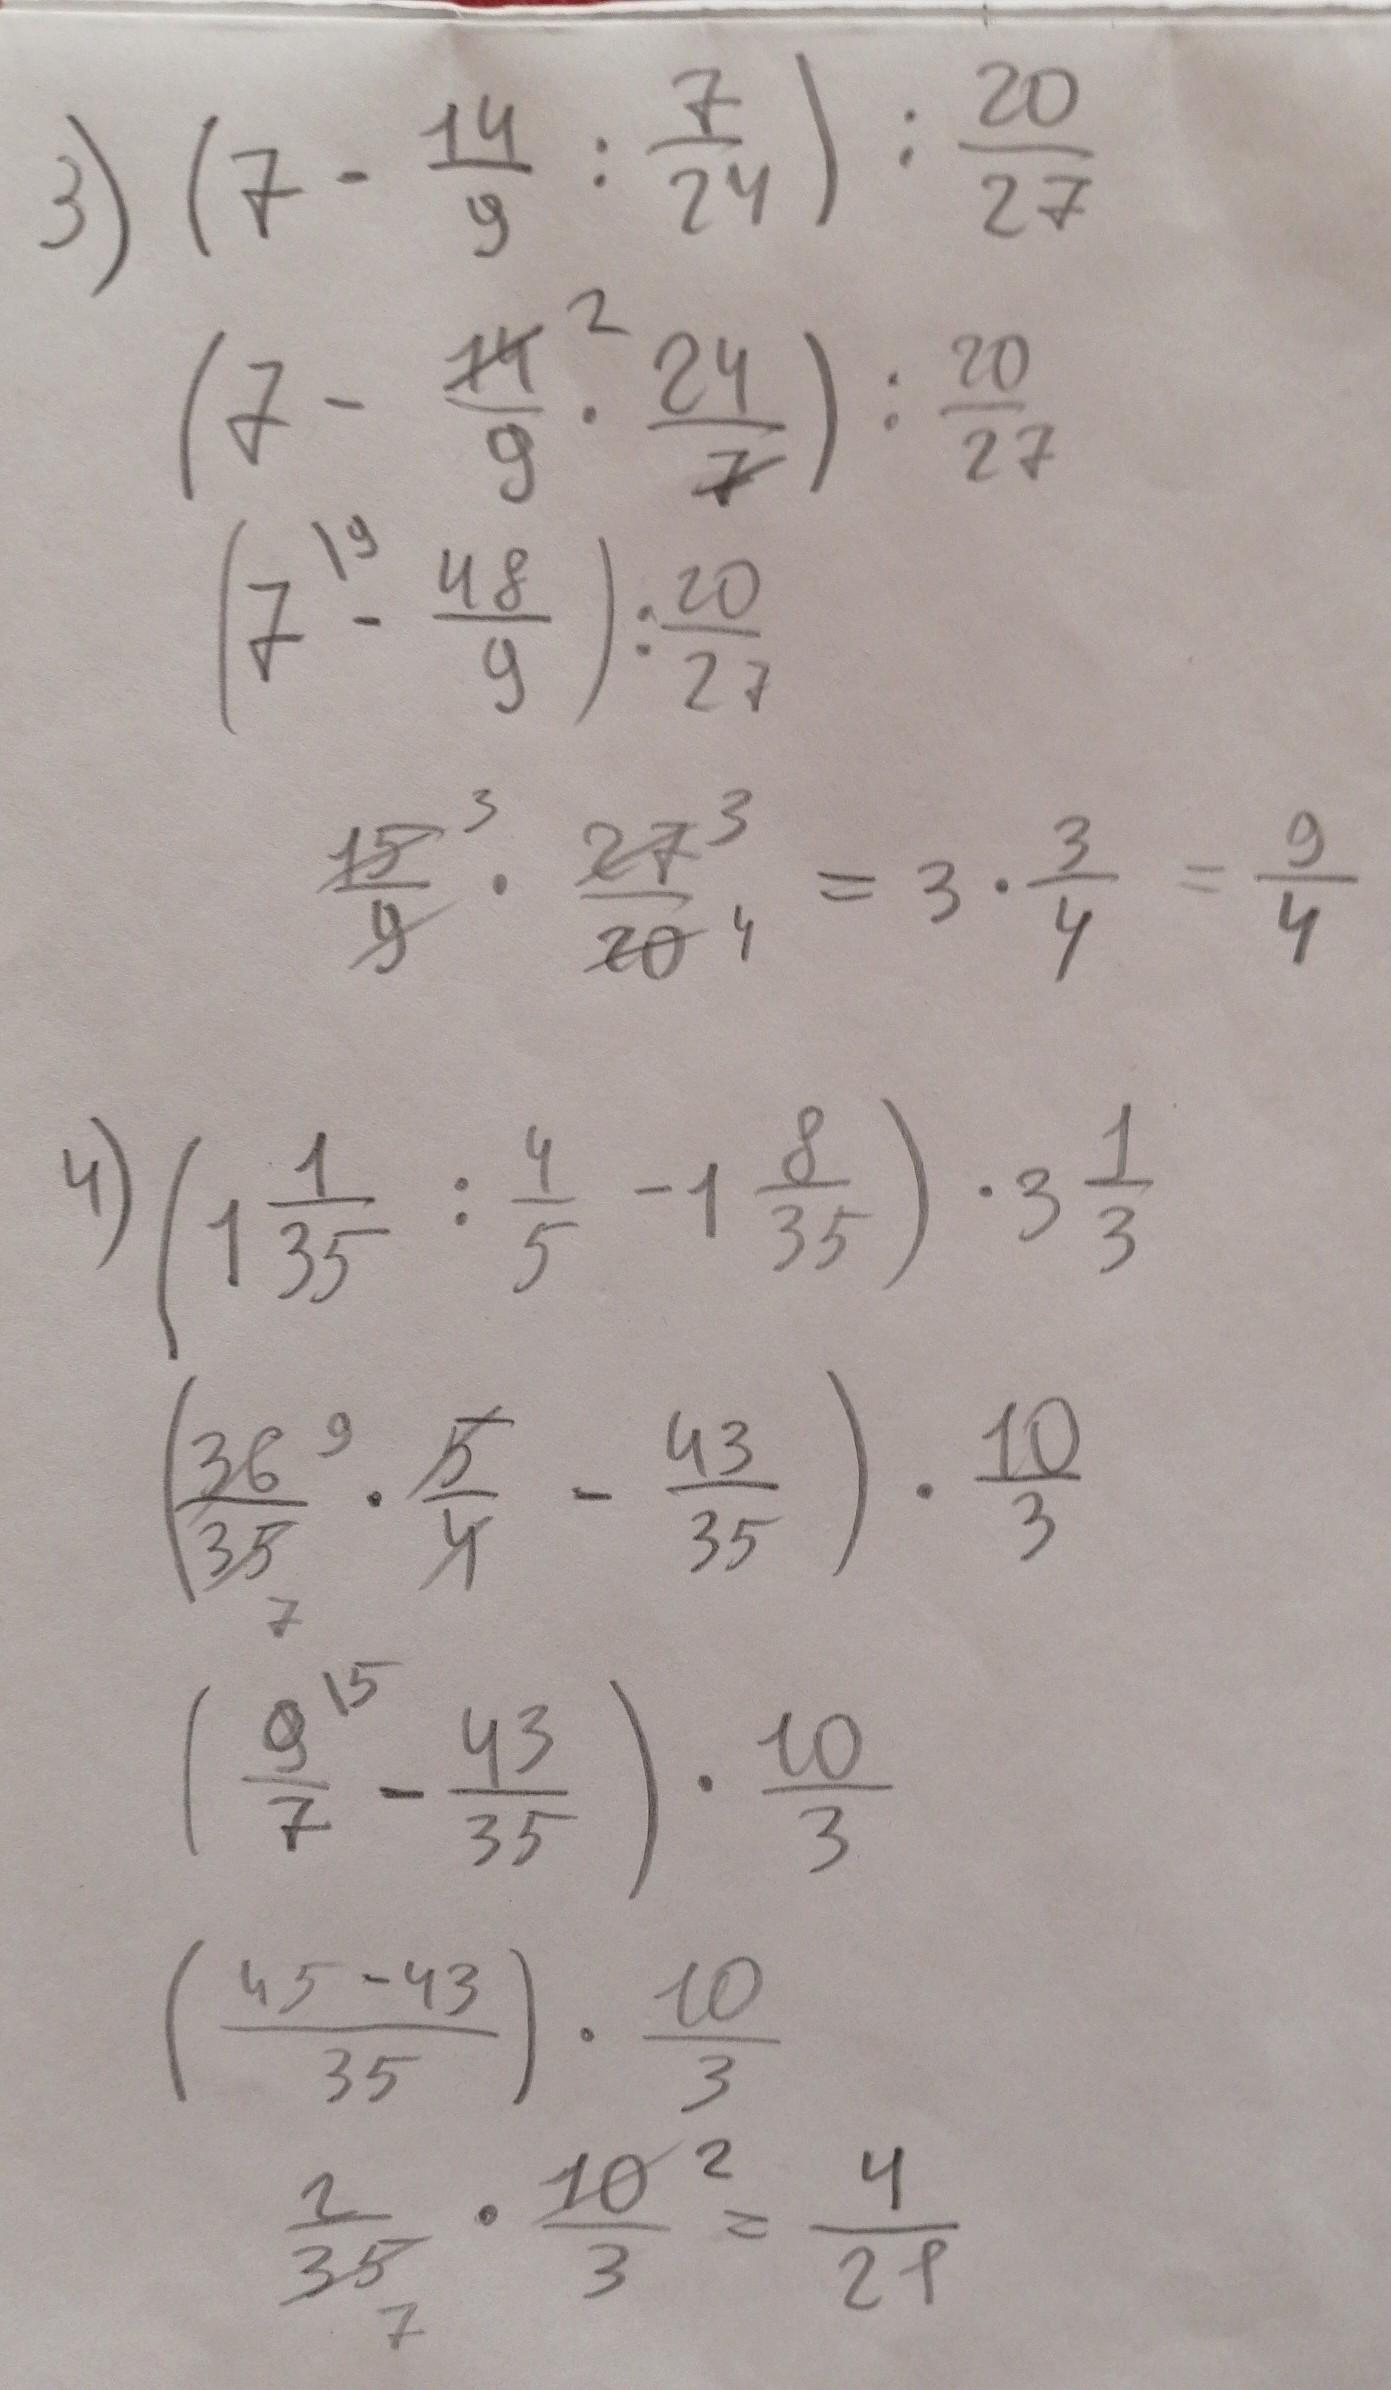 3) (7 - 14/9 : 7/24) : 20/27
(7 - 14/9 ² · 24/7) : 20/27
(7 \9 - 48/9) : 20/27
15/9 ³ · 27/20 ³ 4 = 3 · 3/4 = 9/4
4) (1 1/35 : 4/5 - 1 8/35) · 3 1/3
(36/35 ⁹ 7 · 5/4 - 43/35) · 10/3
(9/7 \5 - 43/35) · 10/3
((45 - 43)/35) · 10/3
2/35 7 · 10/3 ² = 4/21